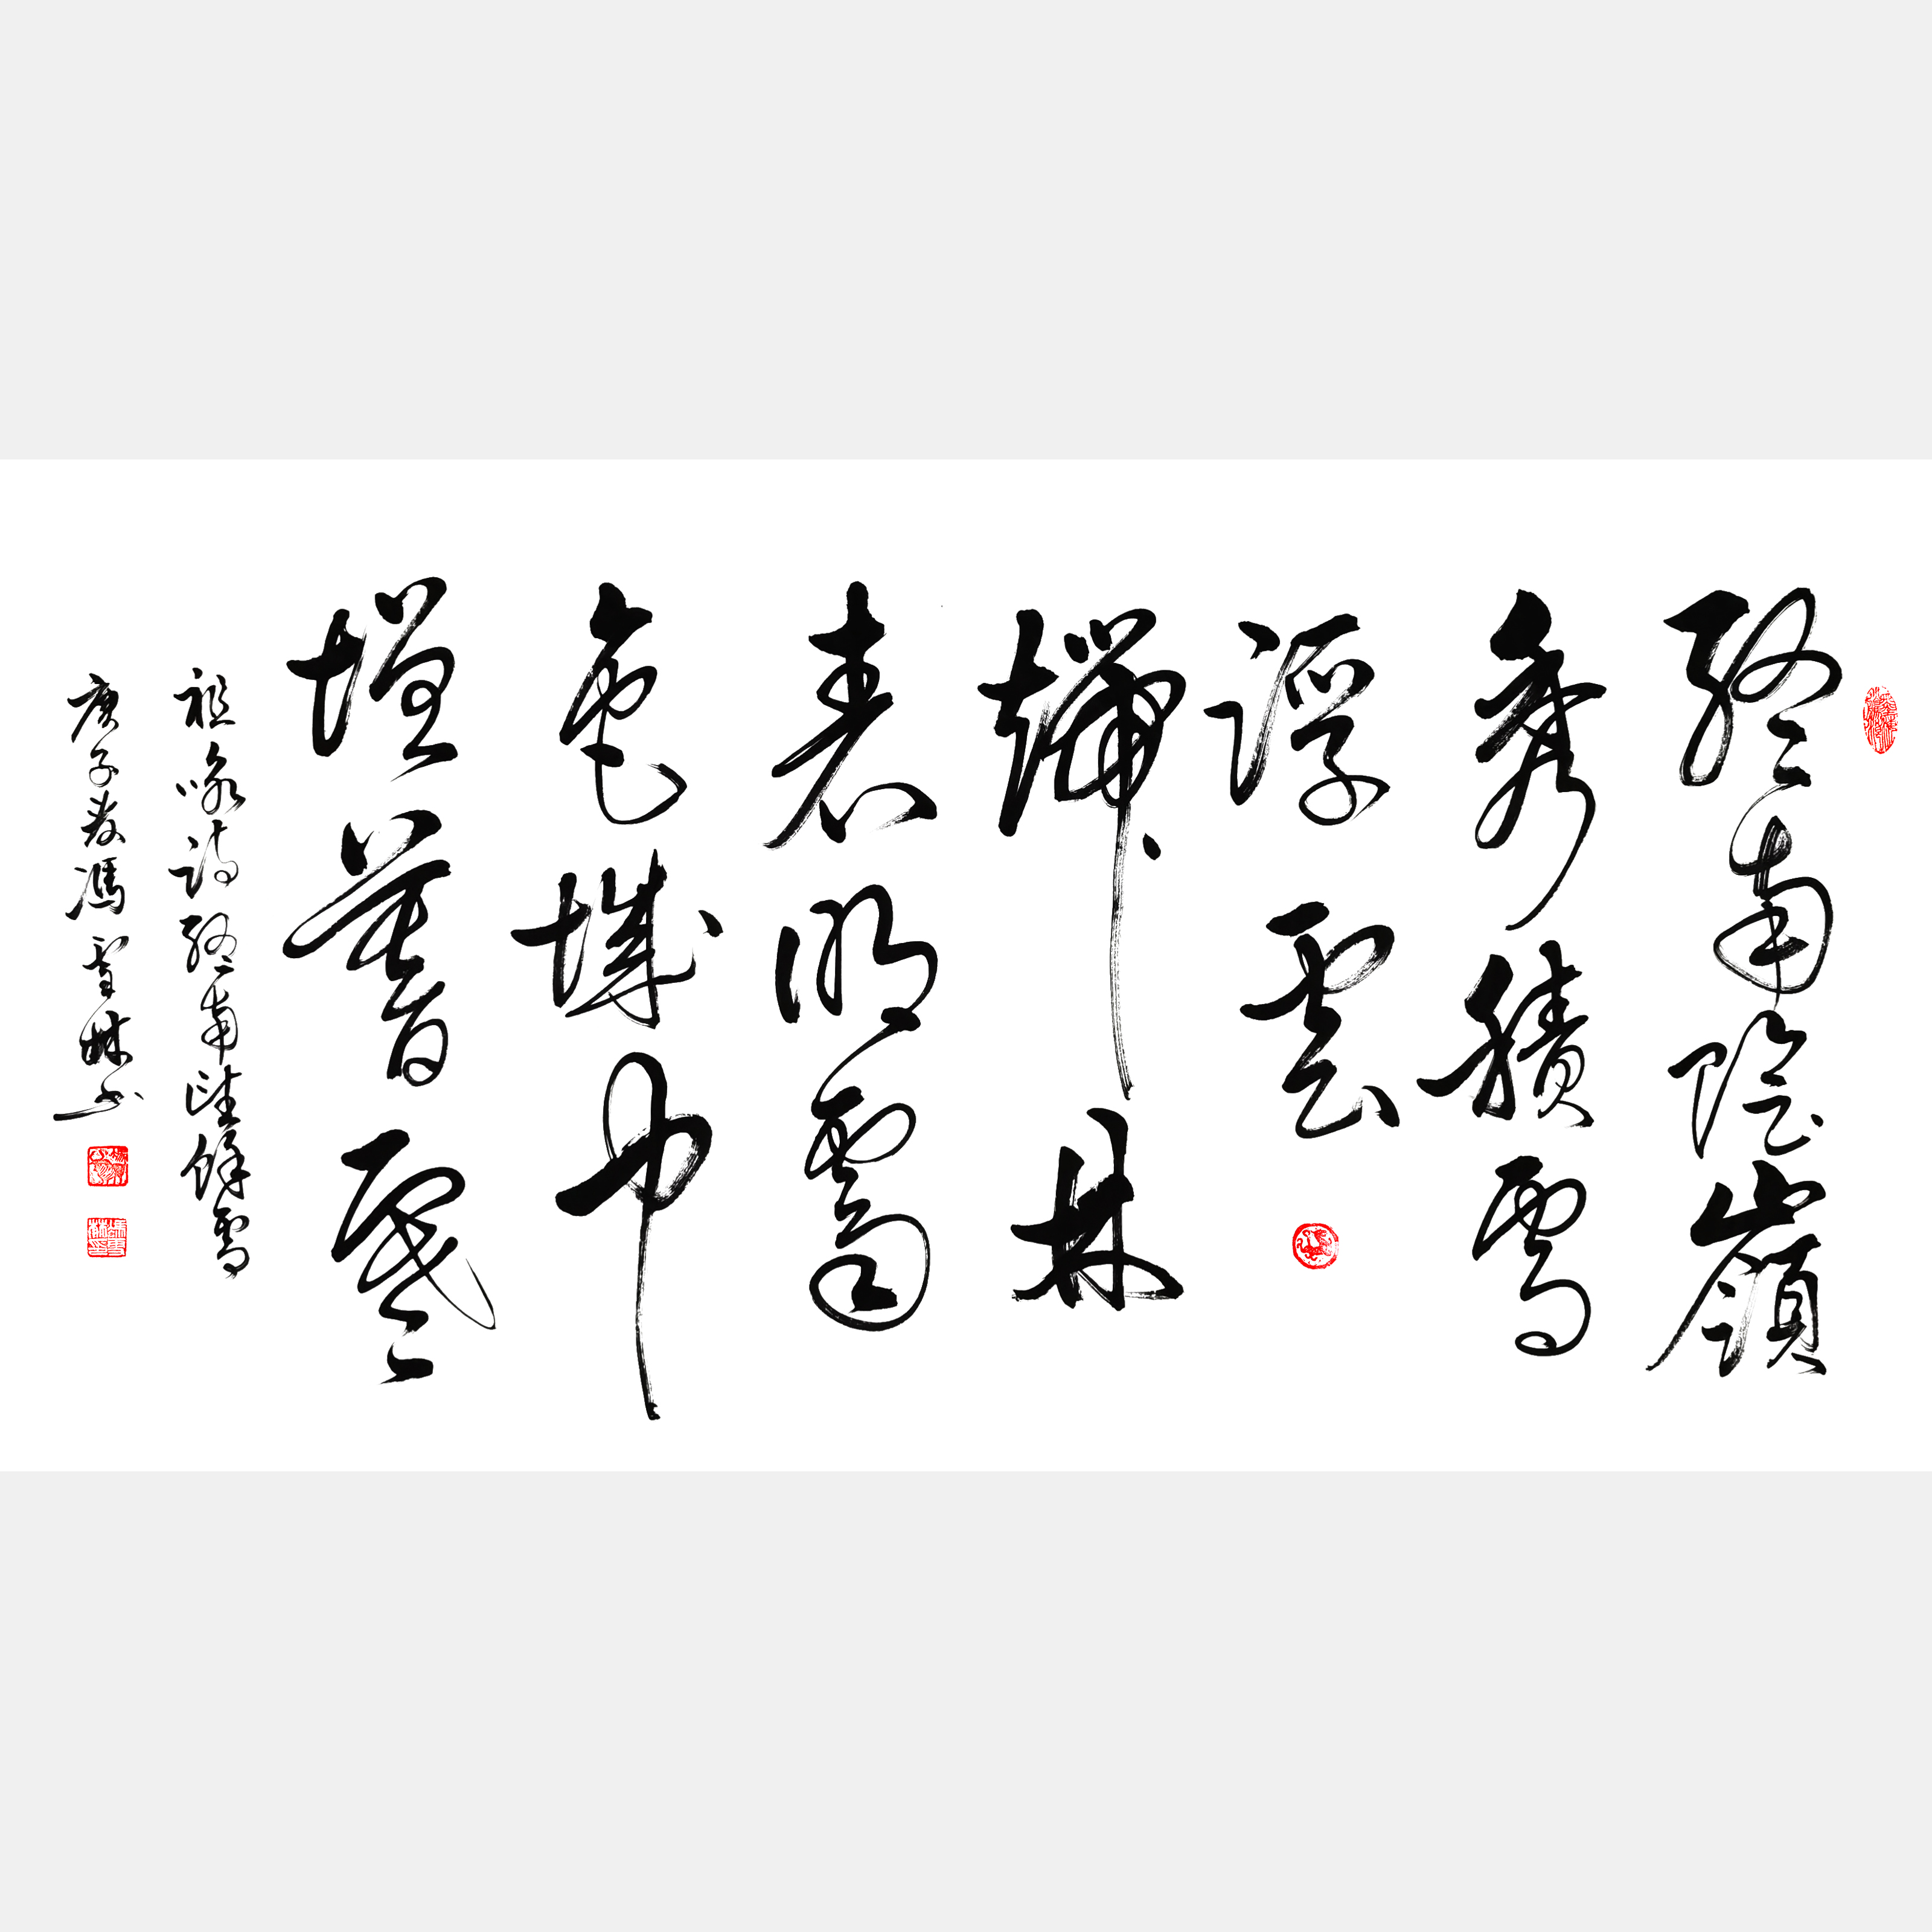 終南陰嶺
秀積雪
浮雲
端林
表明霽
色城中
增暮寒
祖詠詩終南望餘雪
庚子春馮林書